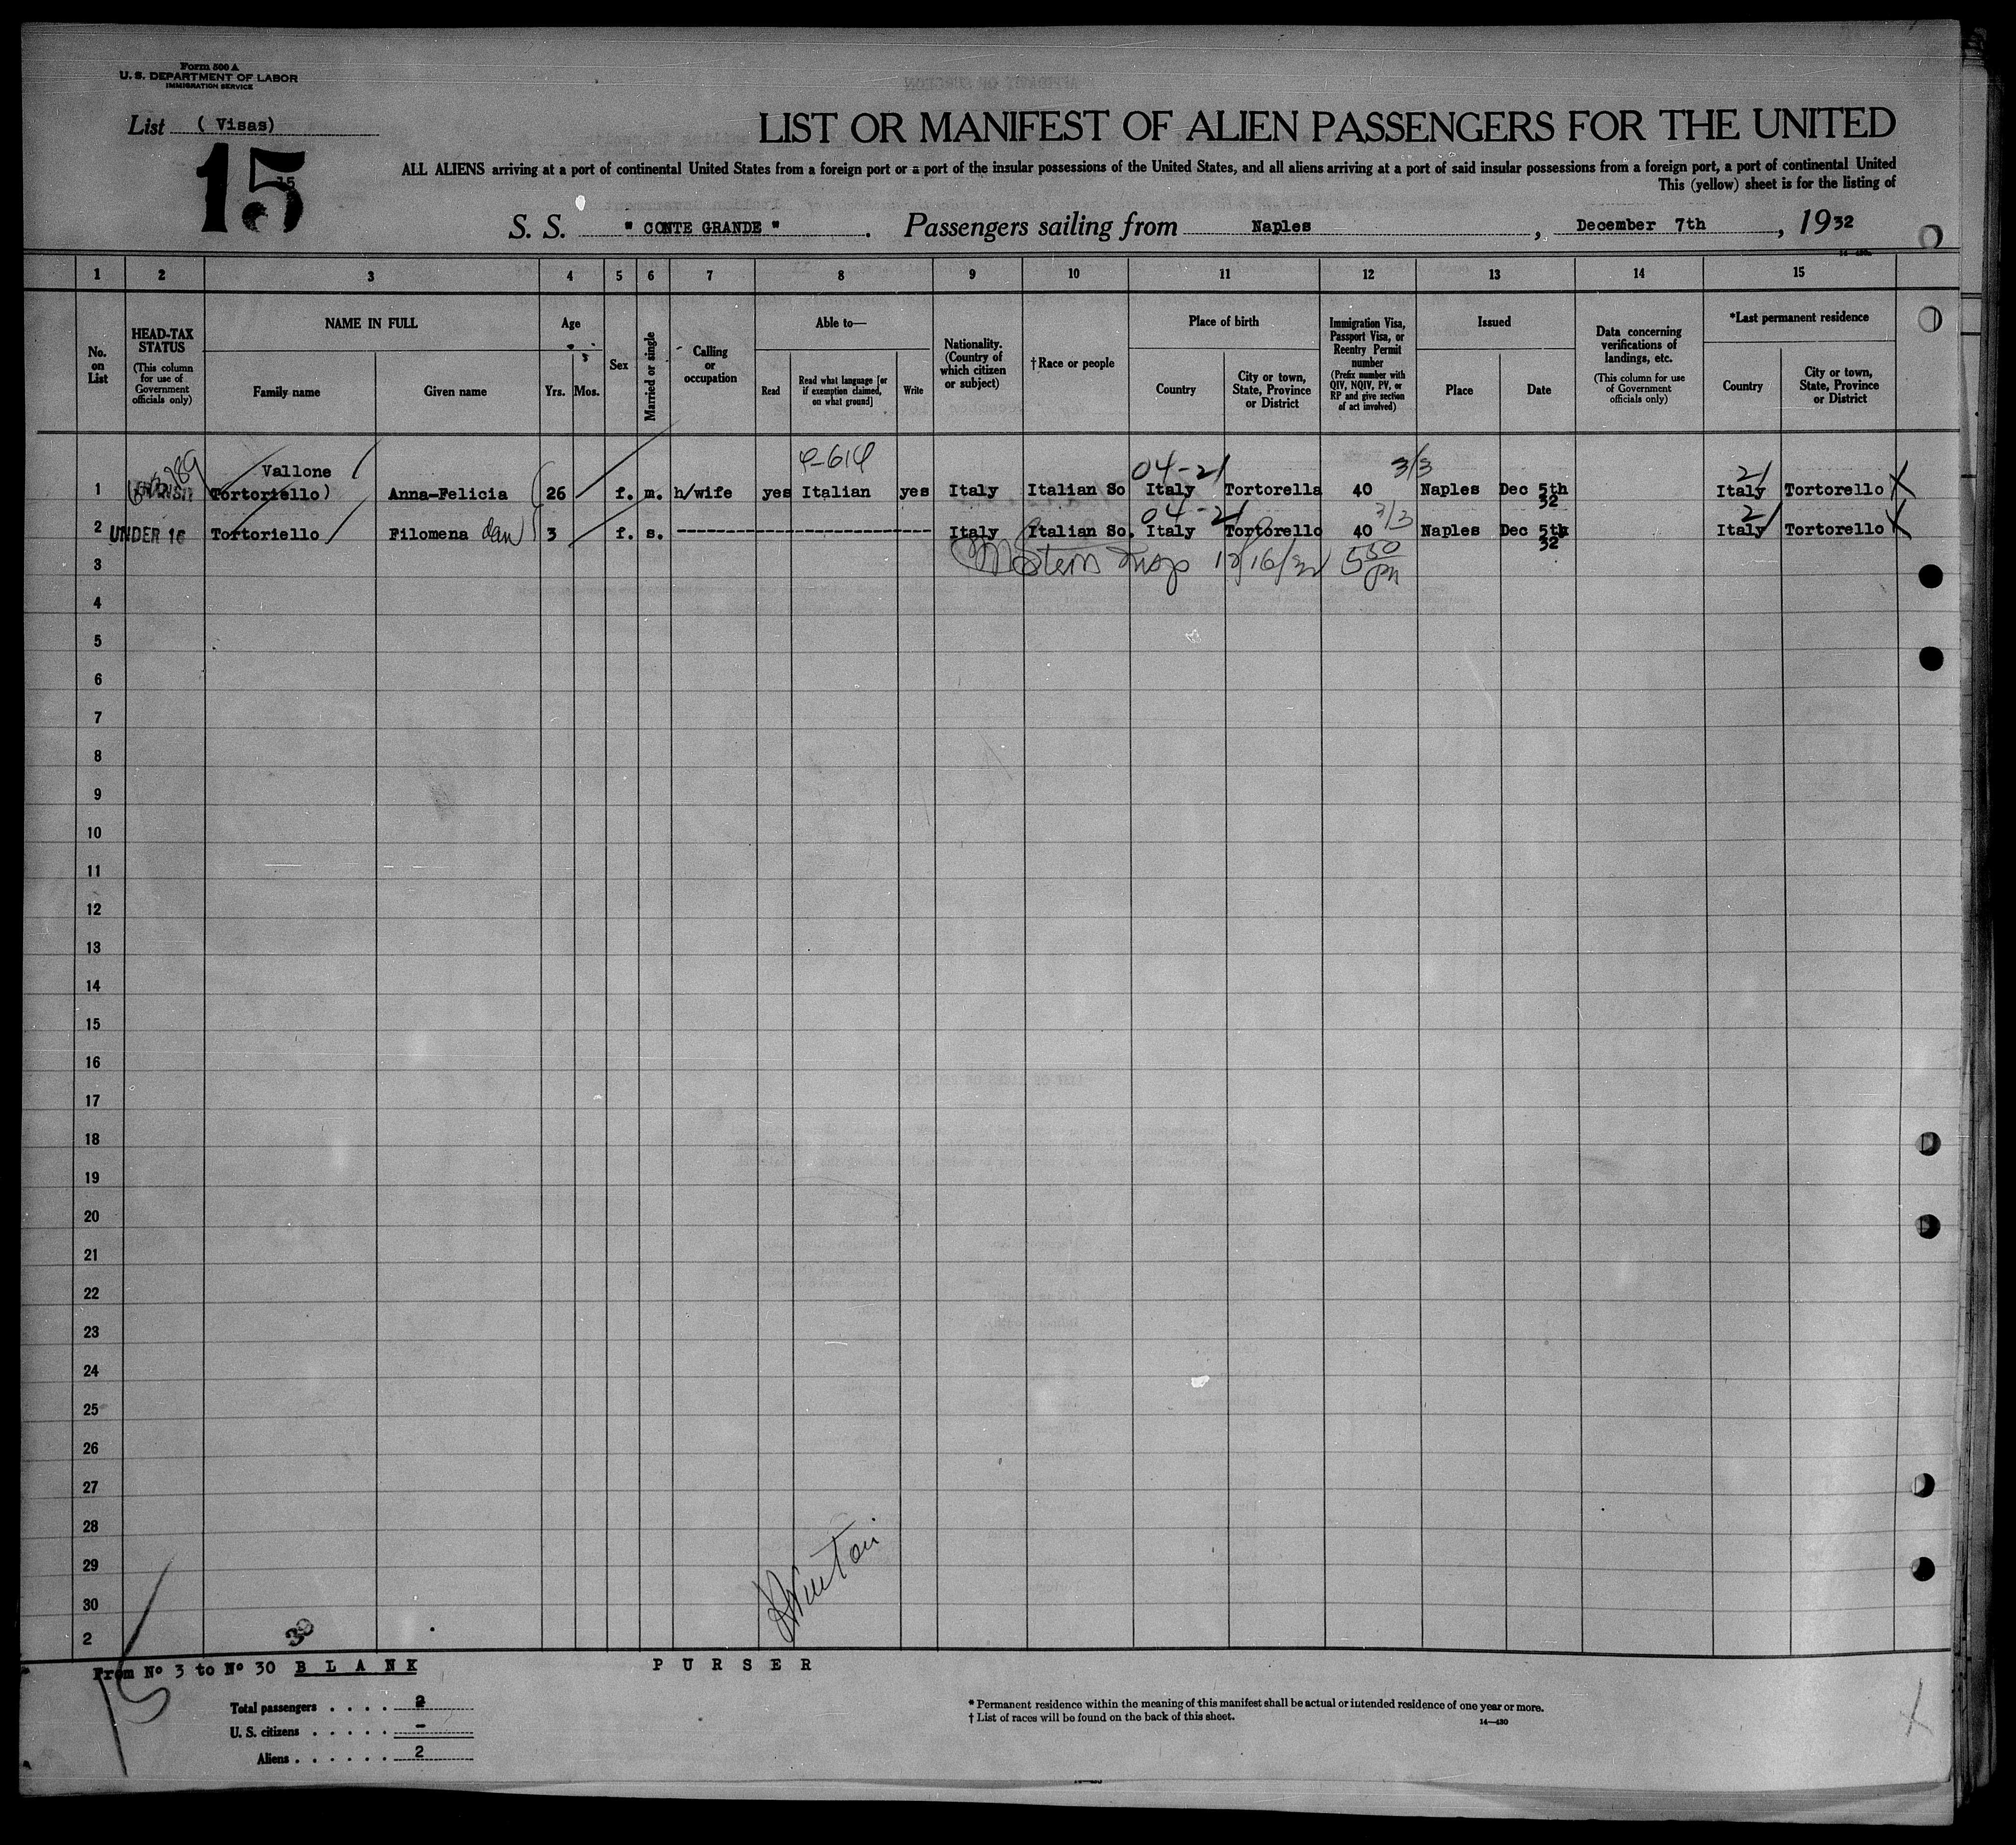 Form 500 A
U. S. DEPARTMENT OF LABOR
IMMIGRATION SERVICE
List ( Visas)
15
15
LIST OR MANIFEST OF ALIEN PASSENGERS FOR THE UNITED
ALL ALIENS arriving at a port of continental United States from a foreign port or a port of the insular possessions of the United States, and all aliens arriving at a port of said insular possessions from a foreign port, a port of continental United
This (yellow) sheet is for the listing of
S. S. " CONTE GRANDE " . Passengers sailing from Naples , December 7th , 1932
1 2 3 4 5 6 7 8 9 10 11 12 13 14 15
No. on List
HEAD-TAX STATUS
(This column for use of Government officials only)
NAME IN FULL
Family name Given name
Age
Yrs. Mos.
Sex
Married or single
Calling or occupation
Able to—
Read Read what language [or if exemption claimed, on what ground] Write
Nationality. (Country of which citizen or subject)
† Race or people
Place of birth
Country City or town, State, Province or District
Immigration Visa, Passport Visa, or Reentry Permit number
(Prefix number with QIV, NQIV, PV, or RP and give section of act involved)
Issued
Place Date
Data concerning verifications of landings, etc.
(This column for use of Government officials only)
*Last permanent residence
Country City or town, State, Province or District
Vallone 04-21 3/3 21
1 TRANSIT Tortoriello) Anna-Felicia 26 f. m. h/wife yes Italian yes Italy Italian So Italy Tortorella 40 Naples Dec 5th 32 Italy Tortorello X
04-21 3/3 21
2 UNDER 16 Tortoriello Filomena dau 3 f. s. Italy Italian So. Italy Tortorello 40 Naples Dec 5th 32 Italy Tortorello X
3 Insp 12/16/32 5 30 pm
4
5
6
7
8
9
10
11
12
13
14
15
16
17
18
19
20
21
22
23
24
25
26
27
28
29
30
2 30
From Nº 3 to Nº 30 B L A N K P U R S E R
15
Total passengers . . . . 2
U. S. citizens . . . . . -
Aliens . . . . . . 2
* Permanent residence within the meaning of this manifest shall be actual or intended residence of one year or more.
† List of races will be found on the back of this sheet.
14—430